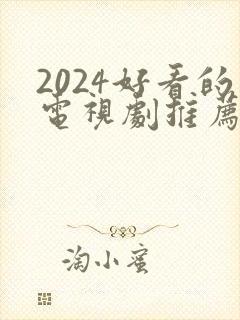 2024好看的
電視劇推薦
淘小蜜